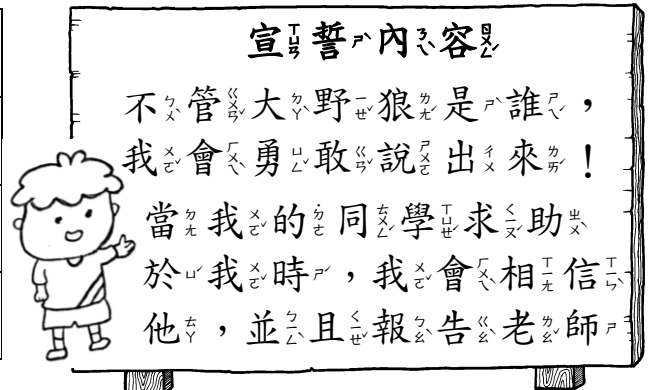 宣誓內容
不管大野狼是誰，
我會勇敢說出來！
當我的同學求助
於我時，我會相信
他，並且報告老師